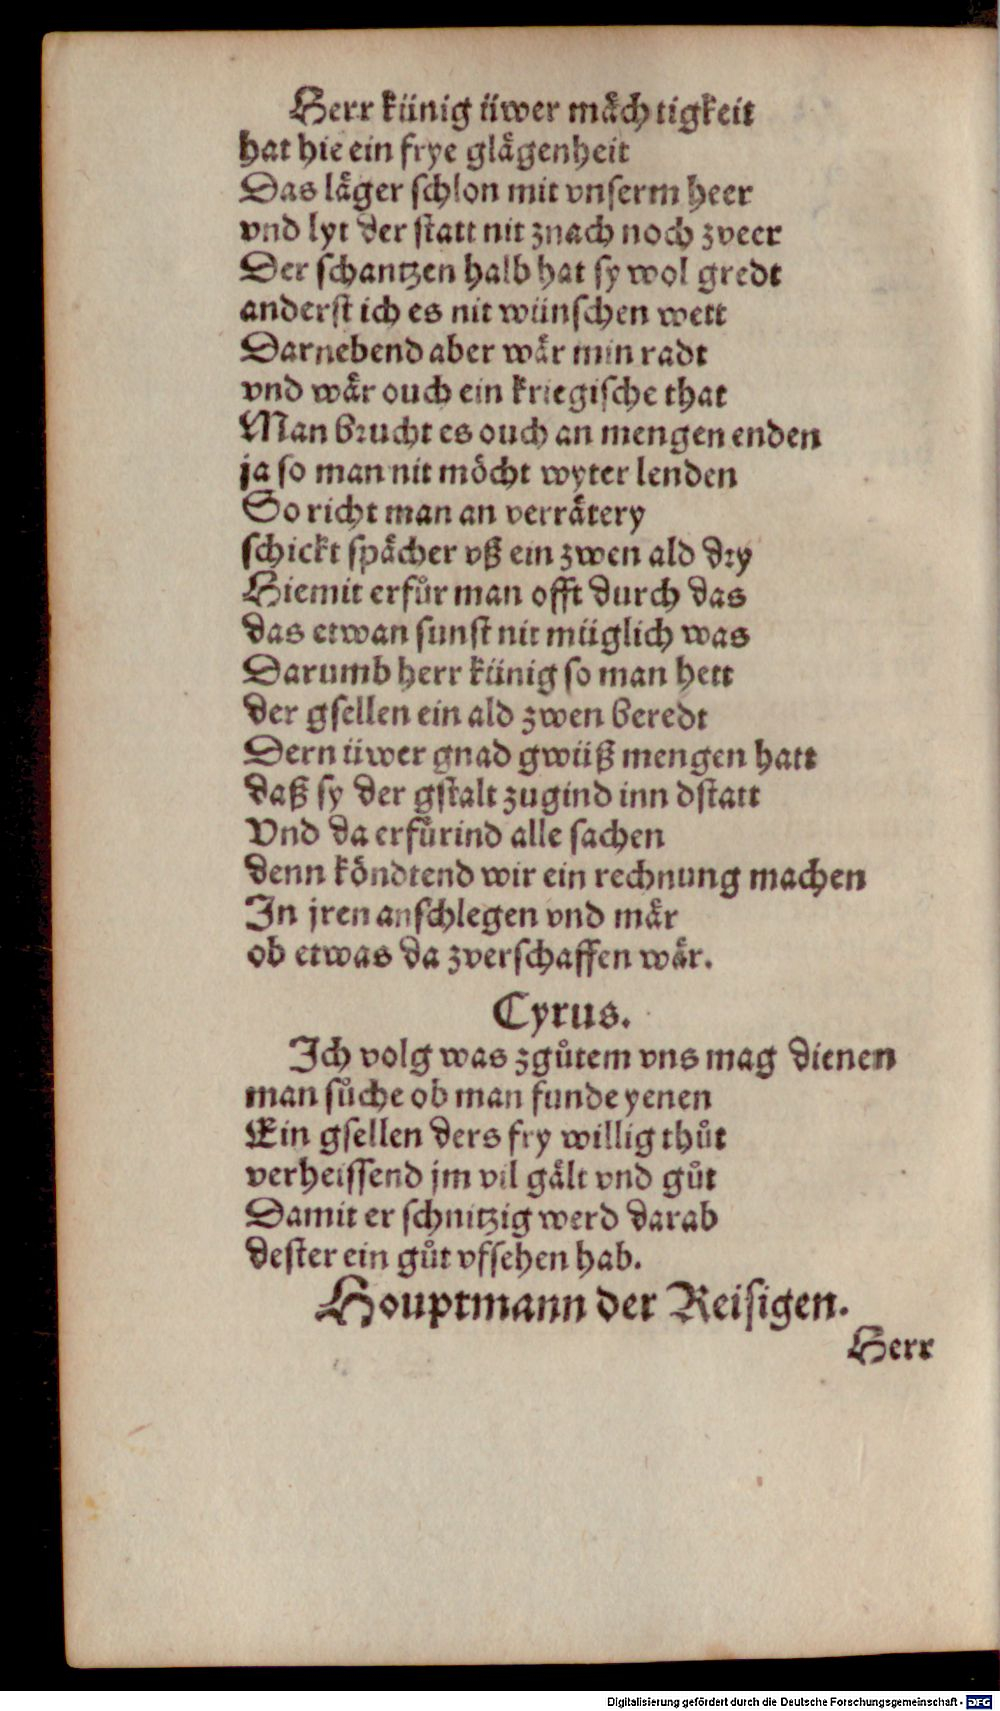 Herr künig üwer mächtigkeit
hat hie ein frye glägenheit
Das läger schlon mit vnserm heer
vnd lyt der statt nit znach noch zveer
Der schantzen halb hat sy wol gredt
anderst ich es nit wünschen wett
Darnebend aber wär min radt
vnd wär ouch ein kriegische that
Man brucht es ouch an mengen enden
ja so man nit möcht wyter lenden
So richt man an verrätery
schickt spächer vß ein zwen ald dry
Hiemit erfůr man offt durch das
das etwan sunst nit müglich was
Darumb herr künig so man hett
der gsellen ein ald zwen beredt
Dern üwer gnad gwüß mengen hatt
daß sy der gstalt zugind inn dstatt
Vnd da erfůrind alle sachen
denn köndtend wir ein rechnung machen
In jren anschlegen vnd mär
ob etwas da zverschaffen wär.
Cyrus.
Ich volg was zgůtem vns mag dienen
man sůche ob man funde yenen
Ein gsellen ders fry willig thůt
verheissend jm vil gält vnd gůt
Damit er schnitzig werd darab
dester ein gůt vfsehen hab.
Houptmann der Reisigen.
Herr
Digitalisierung gefördert durch die Deutsche Forschungsgemeinschaft - DFG